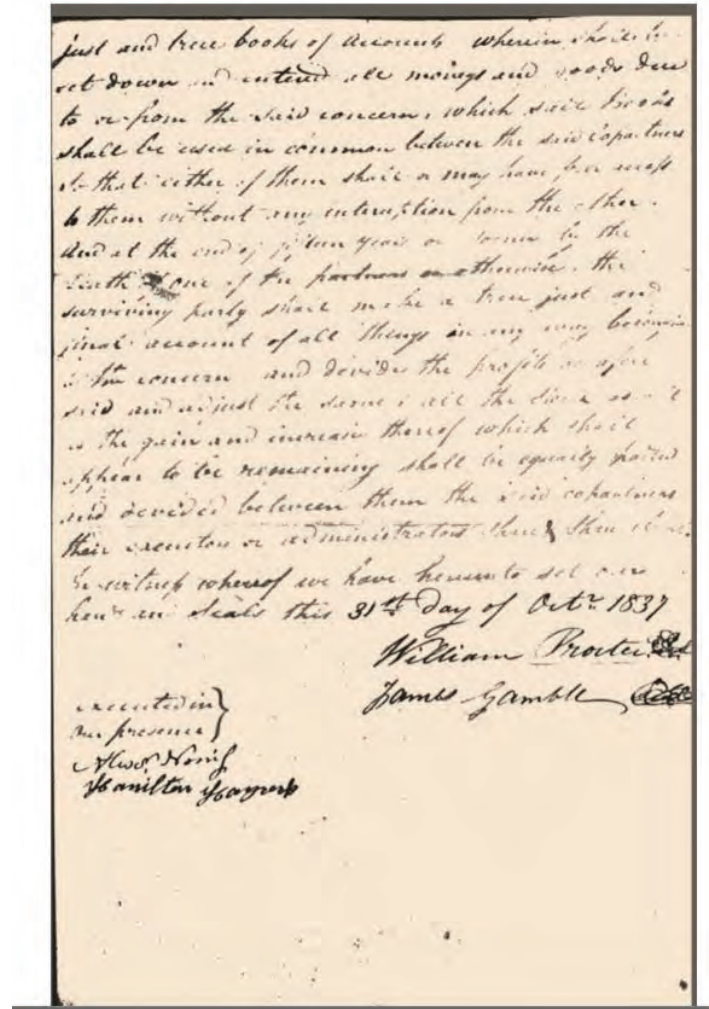 just and true books of accounts wherein shall be
set down and entered all moneys and goods due
to or from the said concern, which said Books
shall be used in common between the said Copartners
So that either of them shall or may have free access
to them without any interruption from the other.
And at the end of years or sooner by the
death of one of the partners or otherwise. the
surviving party shall make a true just and
final account of all things in any way belonging
to the concern and divide the profits as afore
said and adjust the same
the gain and increase thereof which shall
appear to be remaining shall be equally parted
and devided between them the said copartners
their executors or administrators share & share
In witness whereof we have hereunto set our
hands and Seals this 31st day of Octr 1837
William Procter
James Gamble
executed in
our presence
Hamilton